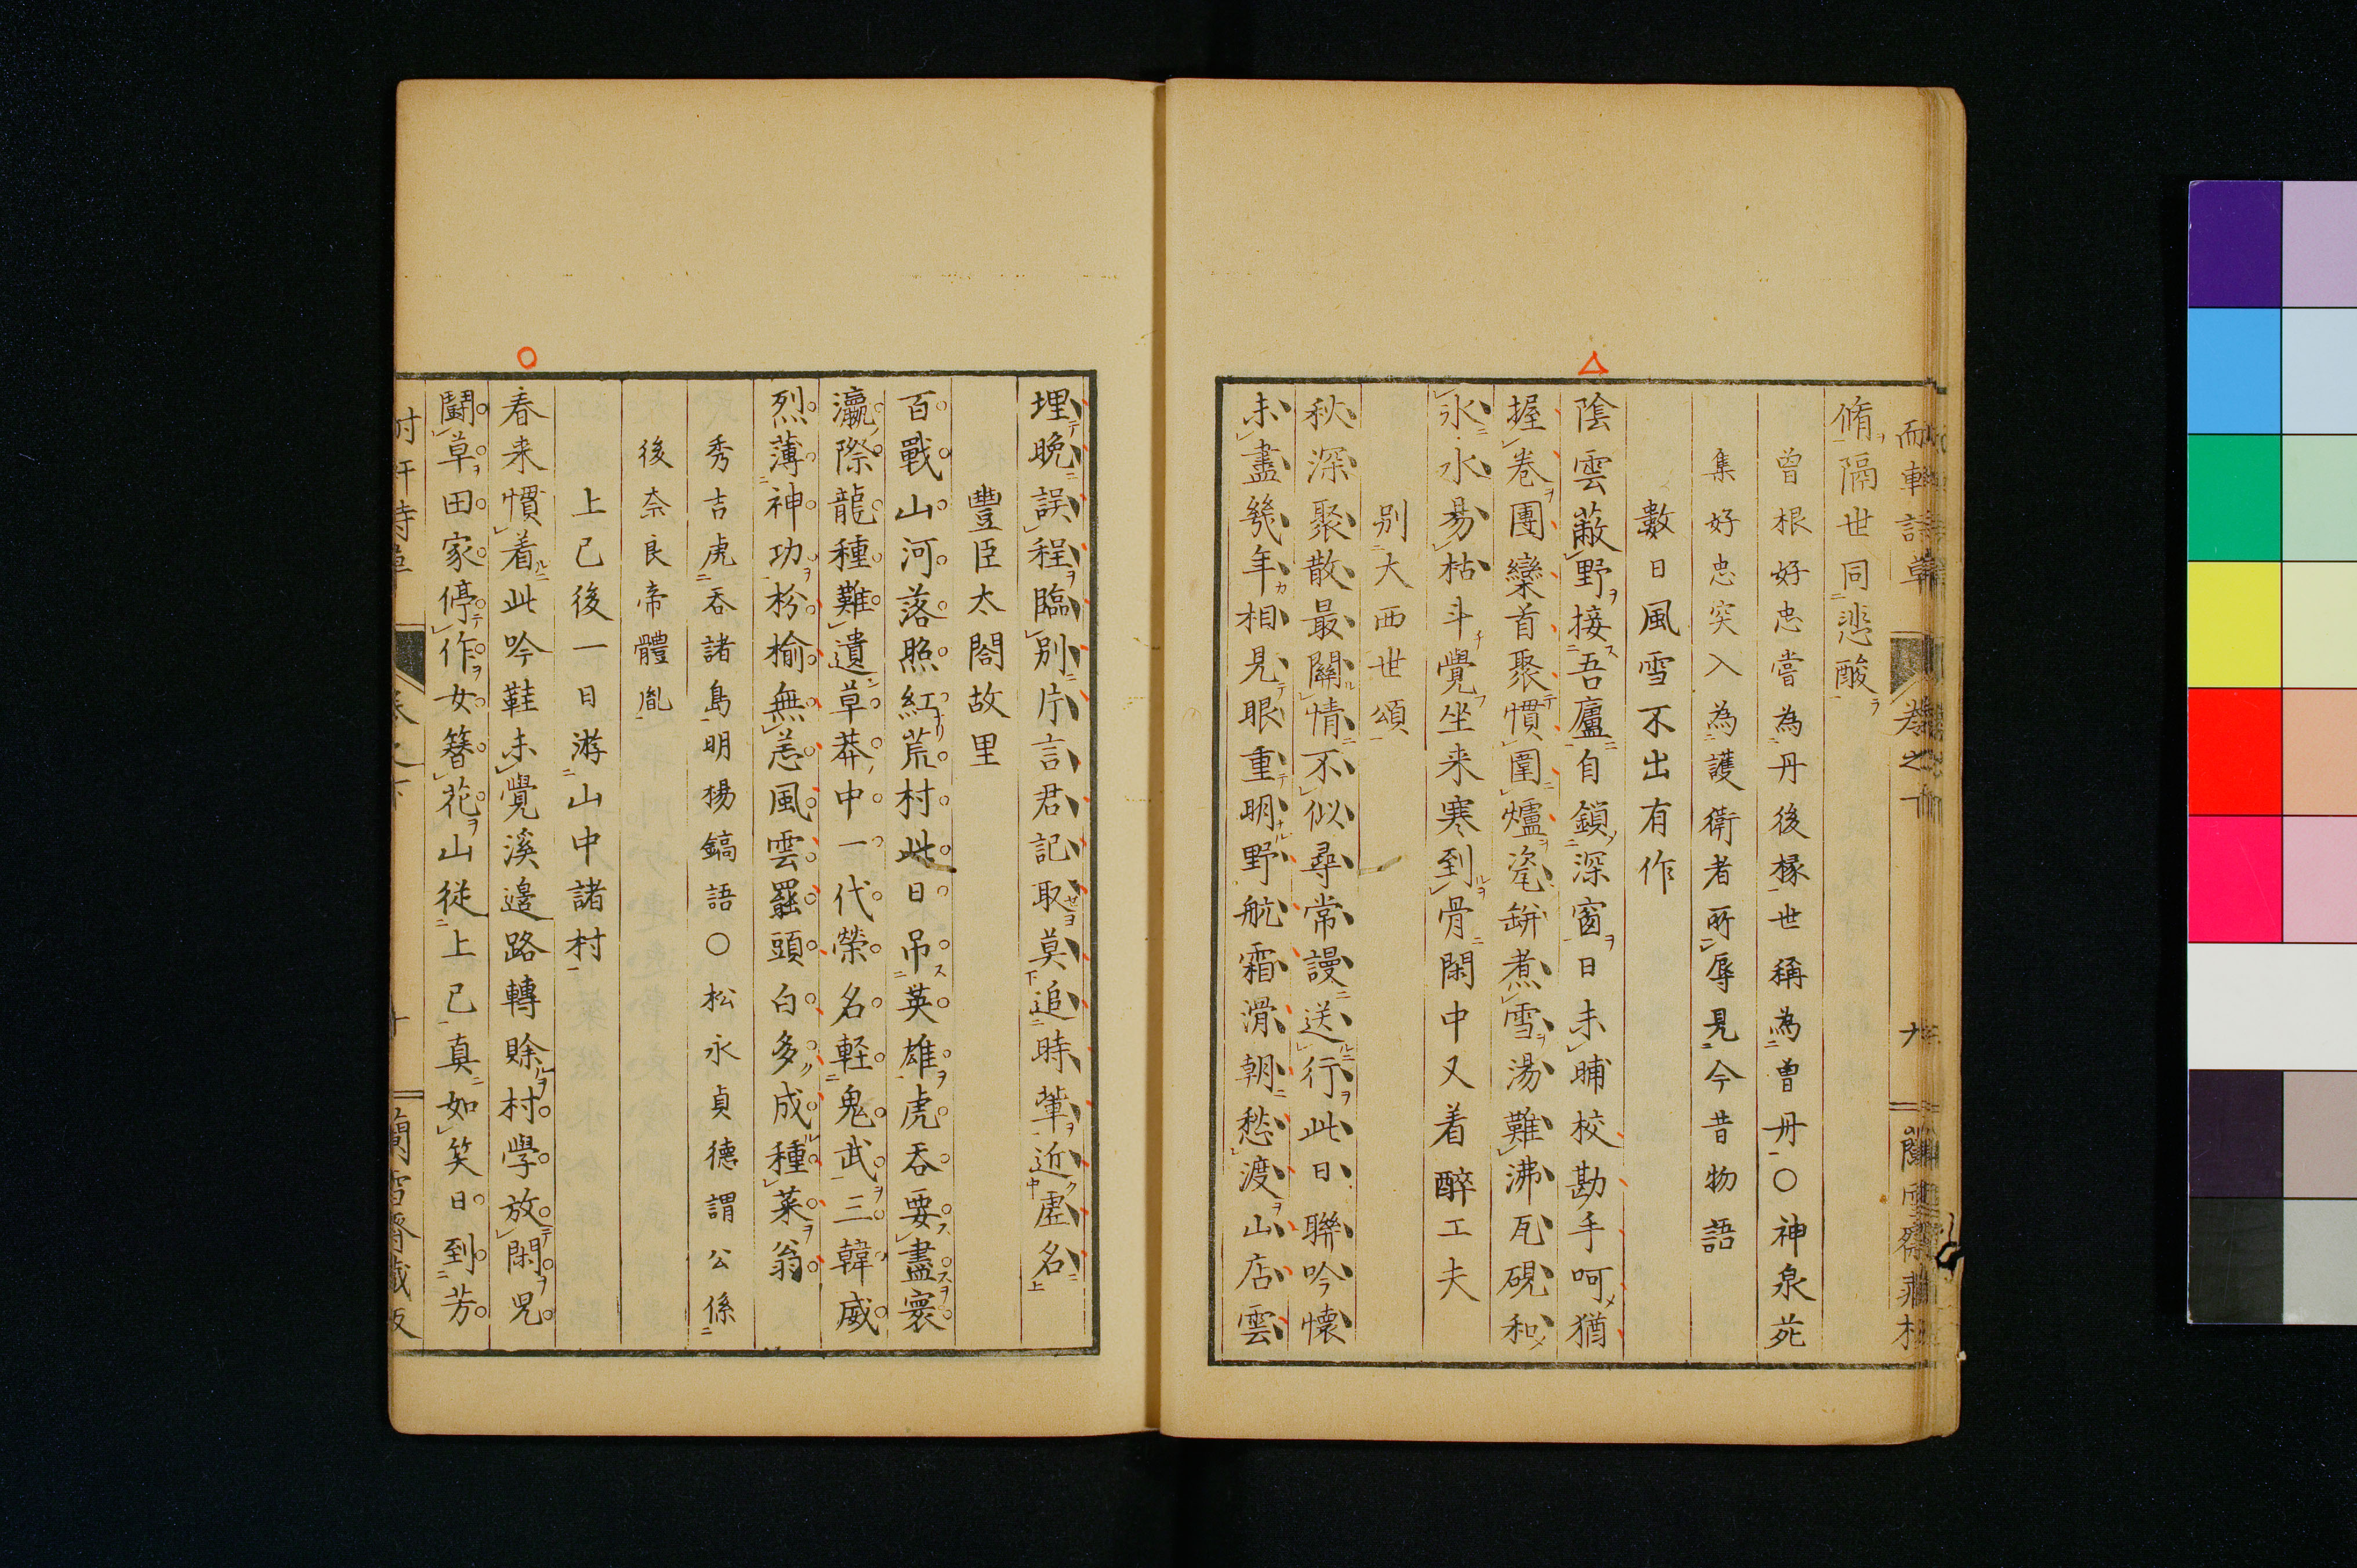 脩隔世同悲酸
曽根好忠嘗為丹後椽世稱為曽丹〇神泉苑
集好忠突入為護衛者所辱見今昔物語
數日風雪不出有作
陰雲蔽野接吾廬自鎖深窗日未晡校勘手呵猶
握卷團欒首聚慣圍爐瓷缾煮雪湯難沸瓦硯和
氷水易枯斗覺坐来寒到骨閑中又着醉工夫
別大西世頌
秋深聚散最關情不似尋常謾送行此日聯吟懷
未盡幾年相見眼重明野航霜滑朝愁渡山店雲
埋晩誤程臨別片言君記取莫追時輩近虚名
豐臣太閤故里
百戰山河落照紅荒村此日吊英雄虎吞要盡寰
瀛際龍種難遺草莽中一代榮名軽鬼武三韓威
烈薄神功枌榆無恙風雲罷頭白多成種菜翁
秀吉虎吞諸島明楊鎬語〇松永貞德謂公係
後奈良帝體胤
上巳後一日游山中諸村
春来慣着此吟鞋未覺溪邉路轉賒村學放閑兒
鬪草田家停作女簪花山従上巳真如笑日到芳